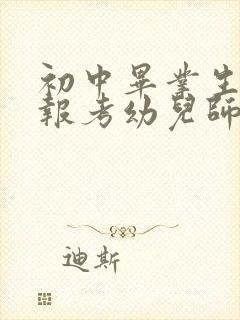 初中畢業生
報考幼兒師
迪斯